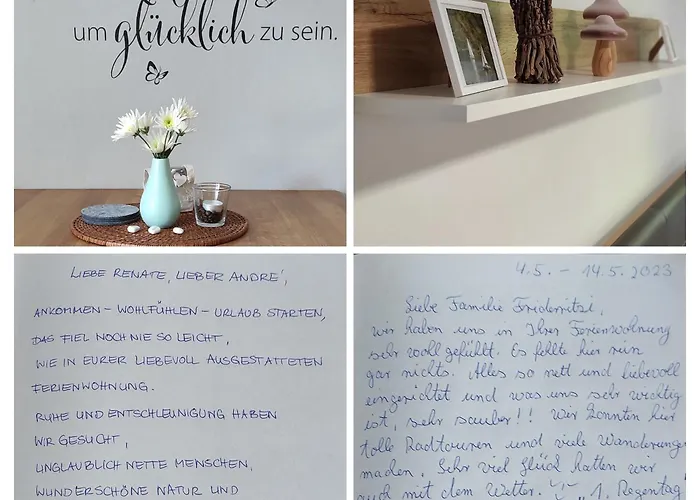 um glücklich zu sein.
LIEBE RENATE, LIEBER ANDRE',
ANKOMMEN - WOHLFÜHLEN - URLAUB STARTEN,
DAS FIEL NOCH NIE SO LEICHT,
WIE IN EURER LIEBEVOLL AUSGESTATTETEN
FERIENWOHNUNG.
RUHE UND ENTSCHLEUNIGUNG HABEN
WIR GESUCHT,
UNGLAUBLICH NETTE MENSCHEN,
WUNDERSCHÖNE NATUR UND
4.5. - 14.5.2023
Liebe Familie
wir haben uns in Ihrer Ferienwohnung
sehr wohl gefühlt. Es fehlte hier rein
gar nichts. Alles so nett und liebevoll
eingerichtet und was uns sehr wichtig
ist, sehr sauber!! Wir konnten hier
tolle Radtouren und viele Wanderungen
machen. Sehr viel Glück hatten wir
auch mit dem Wetter. 1. Regentag